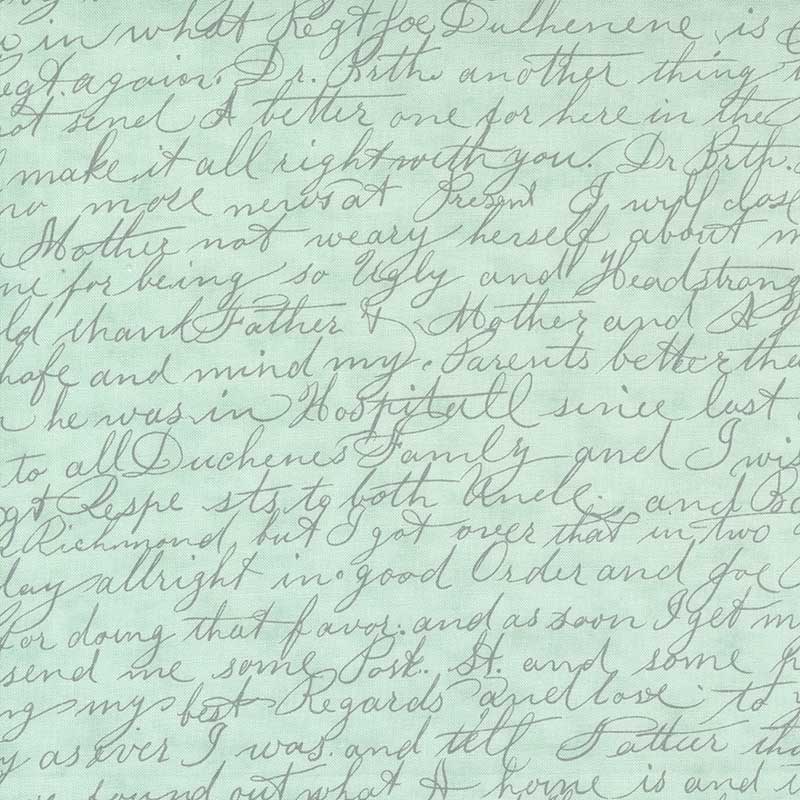 in what Regt Joe Dulhenene is
Regt. again. Dr. Brth. another thing
not send A better one for here in the
make it all right with you. Dr Brth.
no more news at Present I will close
Mother not weary herself about
me for being so Ugly and Headstrong
thank Father & Mother and A
and mind my. Parents better
he was in Hospitall since last
to all Duchenes Family and I
Respe sts, to both Uncle. and
Richmond, but I got over that in two
allright in good Order and Joe
for doing that favor. and as soon I get
send me some Post. St. and some
my best Regards and love to
as ever I was. and tell
found out what A home is and